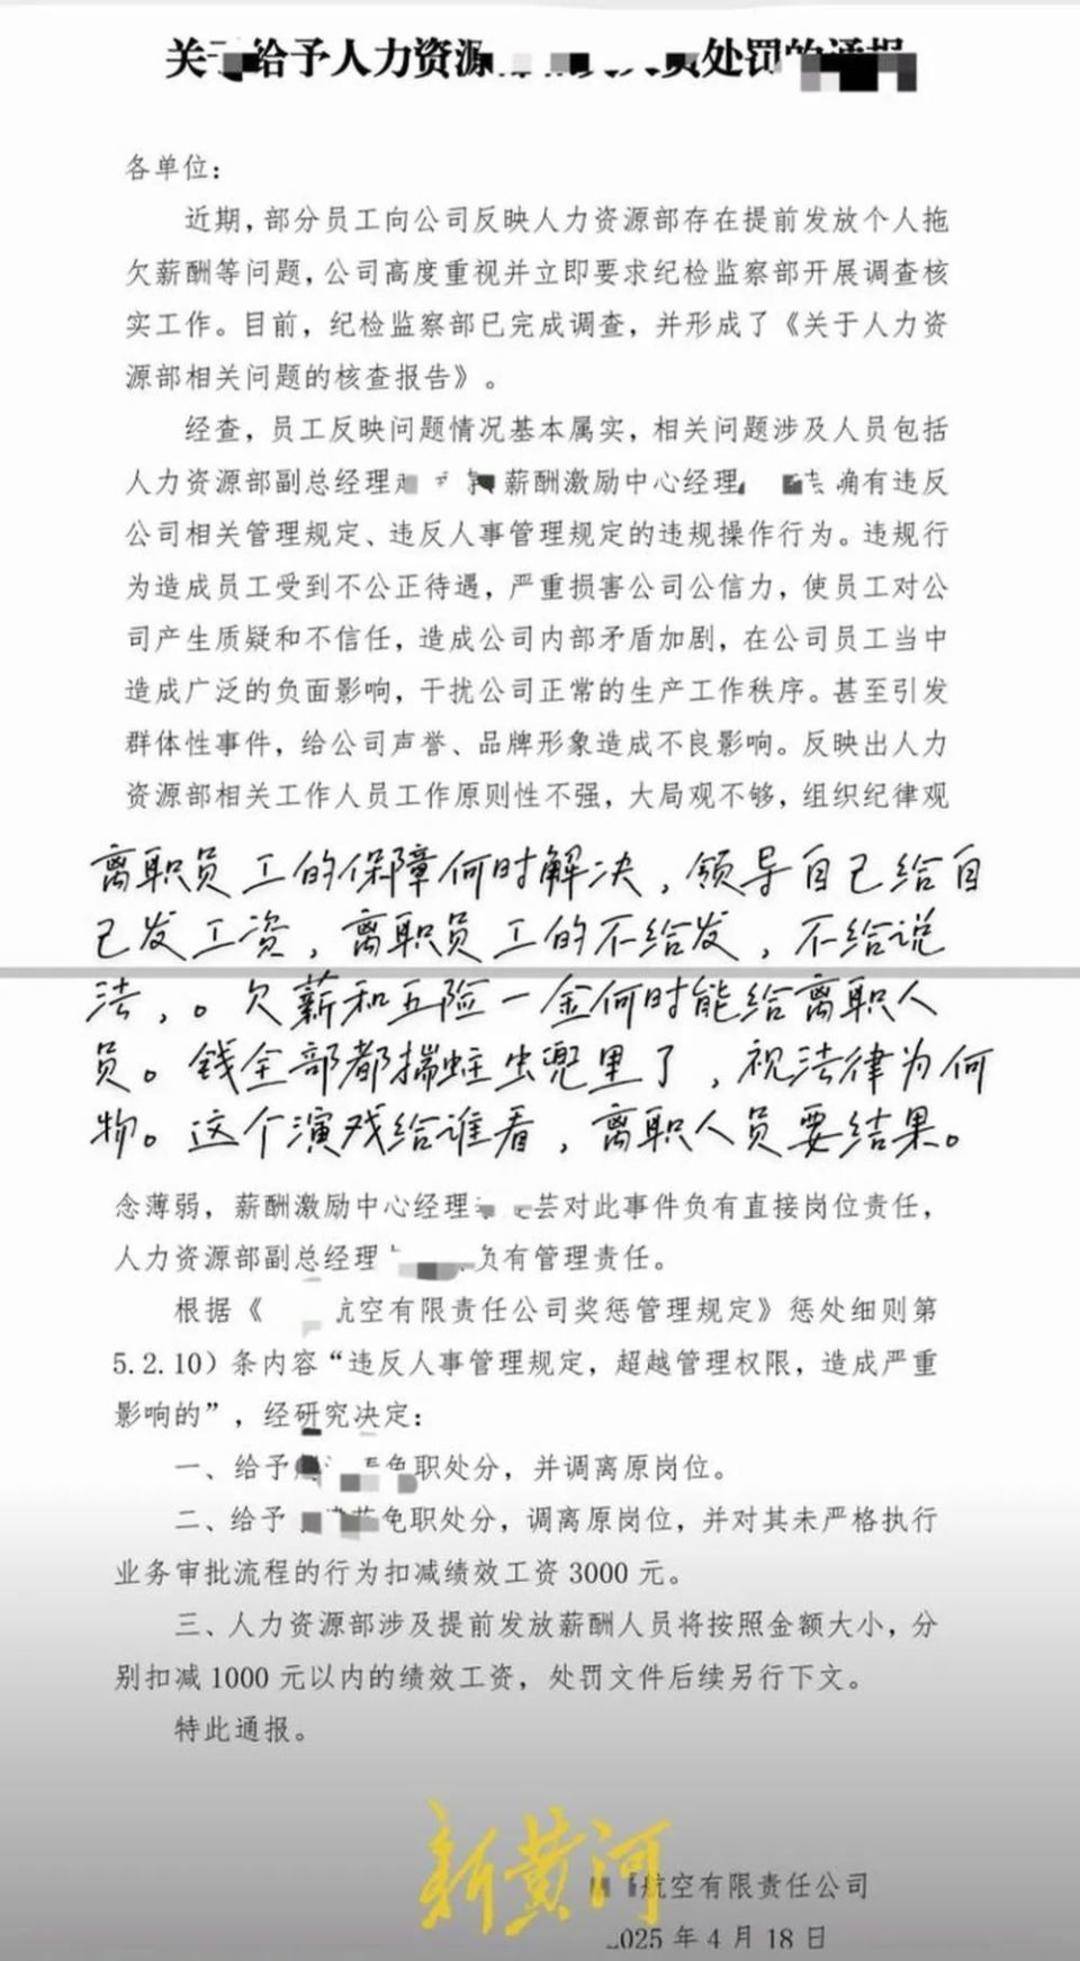 关 给予人力资源 处罚的通报
各单位：
近期，部分员工向公司反映人力资源部存在提前发放个人拖
欠薪酬等问题，公司高度重视并立即要求纪检监察部开展调查核
实工作。目前，纪检监察部已完成调查，并形成了《关于人力资
源部相关问题的核查报告》。
经查，员工反映问题情况基本属实，相关问题涉及人员包括
人力资源部副总经理 薪酬激励中心经理 确有违反
公司相关管理规定、违反人事管理规定的违规操作行为。违规行
为造成员工受到不公正待遇，严重损害公司公信力，使员工对公
司产生质疑和不信任，造成公司内部矛盾加剧，在公司员工当中
造成广泛的负面影响，干扰公司正常的生产工作秩序。甚至引发
群体性事件，给公司声誉、品牌形象造成不良影响。反映出人力
资源部相关工作人员工作原则性不强，大局观不够，组织纪律观
离职员工的保障何时解决，领导自己给自
己发工资，离职员工的不给发，不给说
法，。欠薪和五险一金何时能给离职人
员。钱全部都揣蛀虫兜里了，视法律为何
物。这个演戏给谁看，离职人员要结果。
念薄弱，薪酬激励中心经理 芸对此事件负有直接岗位责任，
人力资源部副总经理 负有管理责任。
根据《 航空有限责任公司奖惩管理规定》惩处细则第
5.2.10）条内容“违反人事管理规定，超越管理权限，造成严重
影响的”，经研究决定：
一、给予 免职处分，并调离原岗位。
二、给予 免职处分，调离原岗位，并对其未严格执行
业务审批流程的行为扣减绩效工资 3000 元。
三、人力资源部涉及提前发放薪酬人员将按照金额大小，分
别扣减 1000 元以内的绩效工资，处罚文件后续另行下文。
特此通报。
新黄河
航空有限责任公司
2025 年 4 月 18 日